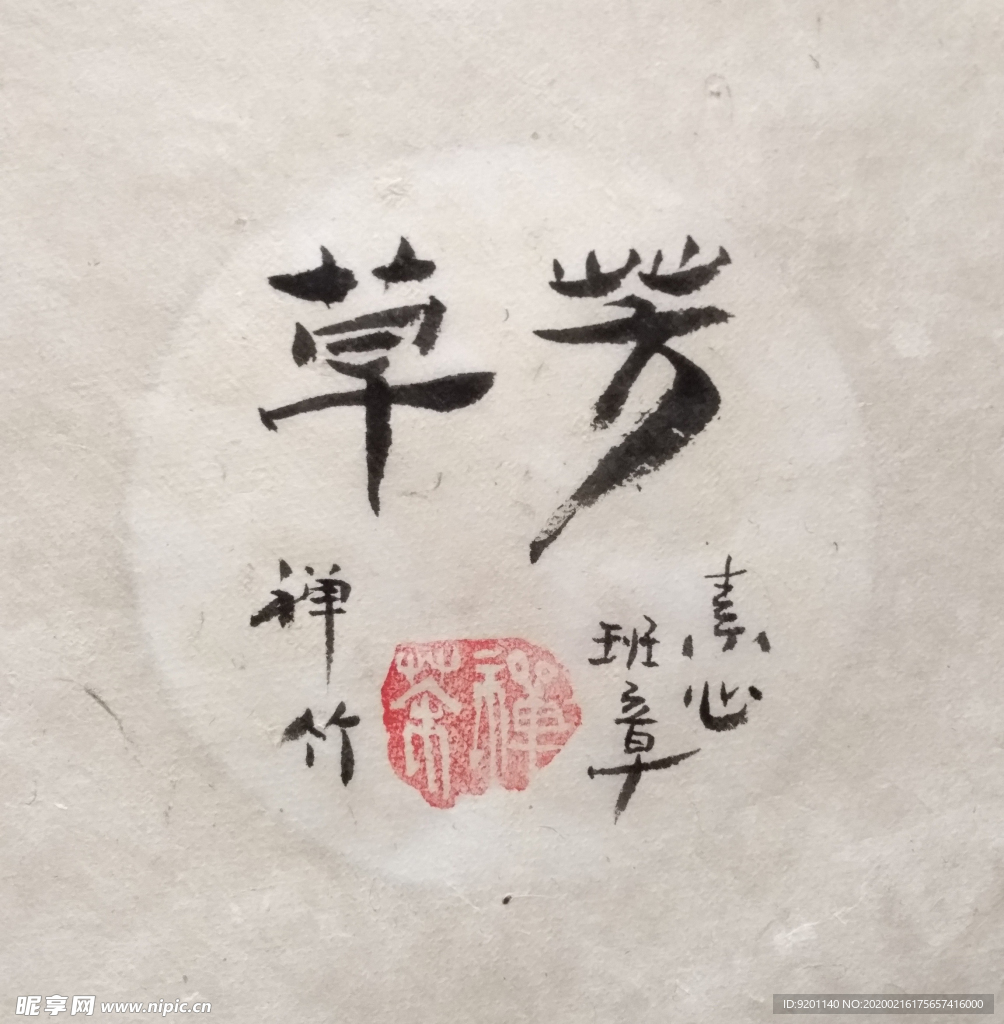 芳草
素心
班章
禅茶
禅竹
昵享网 www.nipic.cn
ID:9201140 NO:20200216175657416000